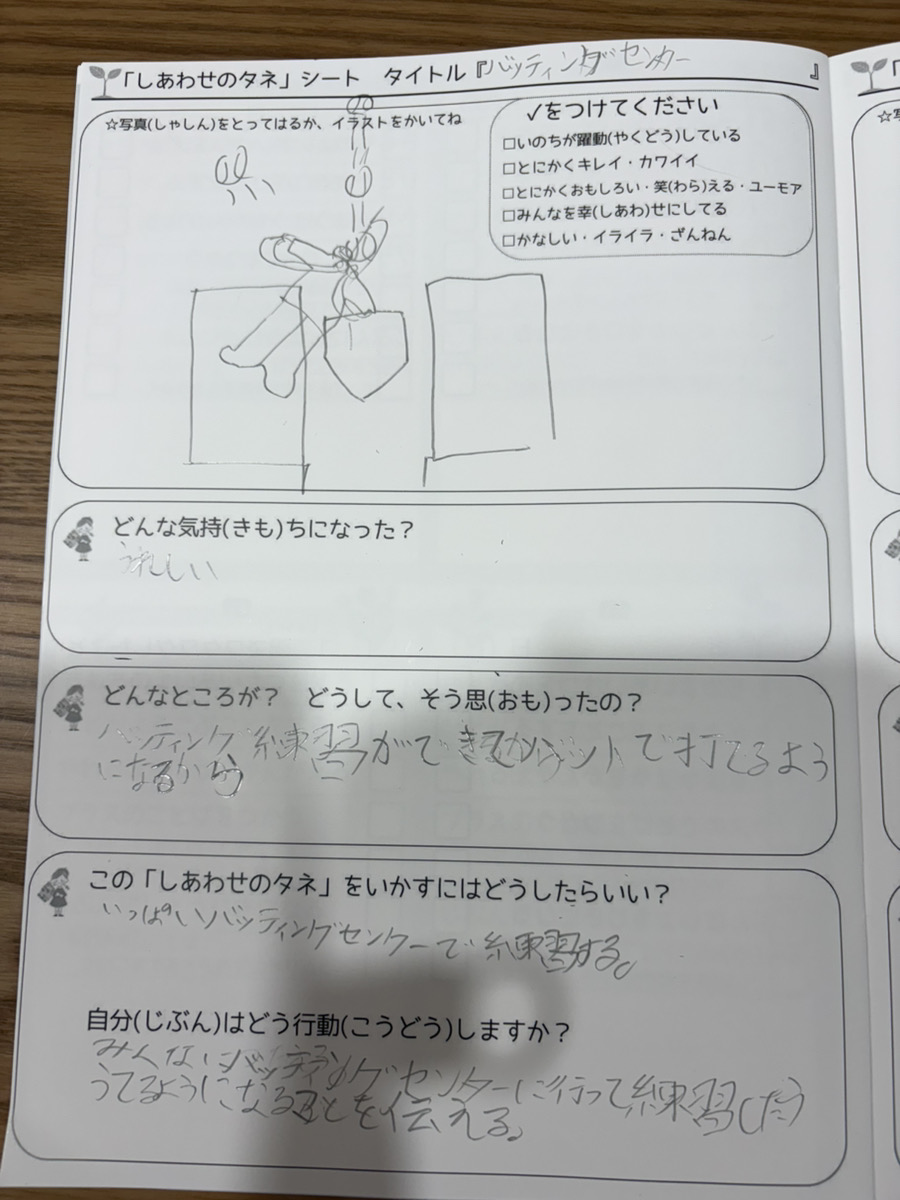 「しあわせのタネ」シート　タイトル『バッティングセンター』
☆写真(しゃしん)をとってはるか、イラストをかいてね
✓をつけてください
□いのちが躍動(やくどう)している
□とにかくキレイ・カワイイ
□とにかくおもしろい・笑(わら)える・ユーモア
□みんなを幸(しあわ)せにしてる
□かなしい・イライラ・ざんねん
どんな気持(きも)ちになった？
うれしい
どんなところが？　どうして、そう思(おも)ったの？
バッティング練習ができてバットで打てるよう
になるから
この「しあわせのタネ」をいかすにはどうしたらいい？
いっぱいバッティングセンターで練習する。
自分(じぶん)はどう行動(こうどう)しますか？
みんなにバッティングセンターに行って練習したら
うてるようになることを伝える。